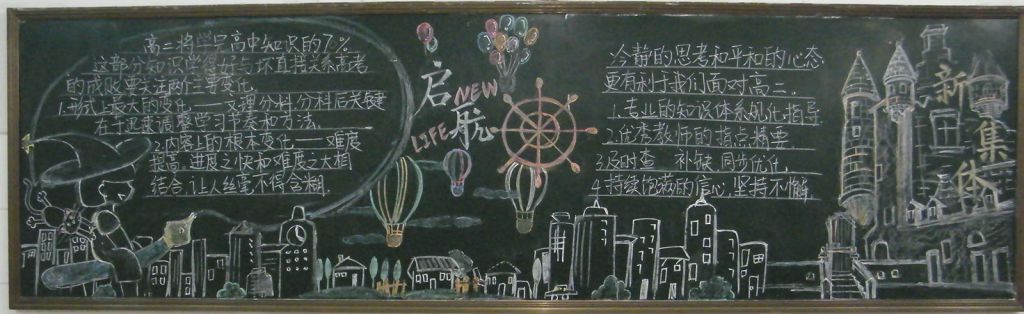 高二将学完高中知识的7%
这部分知识学得好与坏直接关系高考
的成败单关注两个主要变化
1.形式上最大的变化——文理分科,分科后关键
在于迅速调整学习节奏和方法.
2.内容上的根本变化——难度
提高,进展之快和难度之大相
结合,让人丝毫不得含糊.
启航
NEW
LIFE
冷静的思考和平和的心态
更有利于我们面对高二.
1.专业的知识体系规化指导
2.优秀教师的指点精要
3.及时查 补缺 同步优化.
4.持续饱满的信心,坚持不懈.
新集体